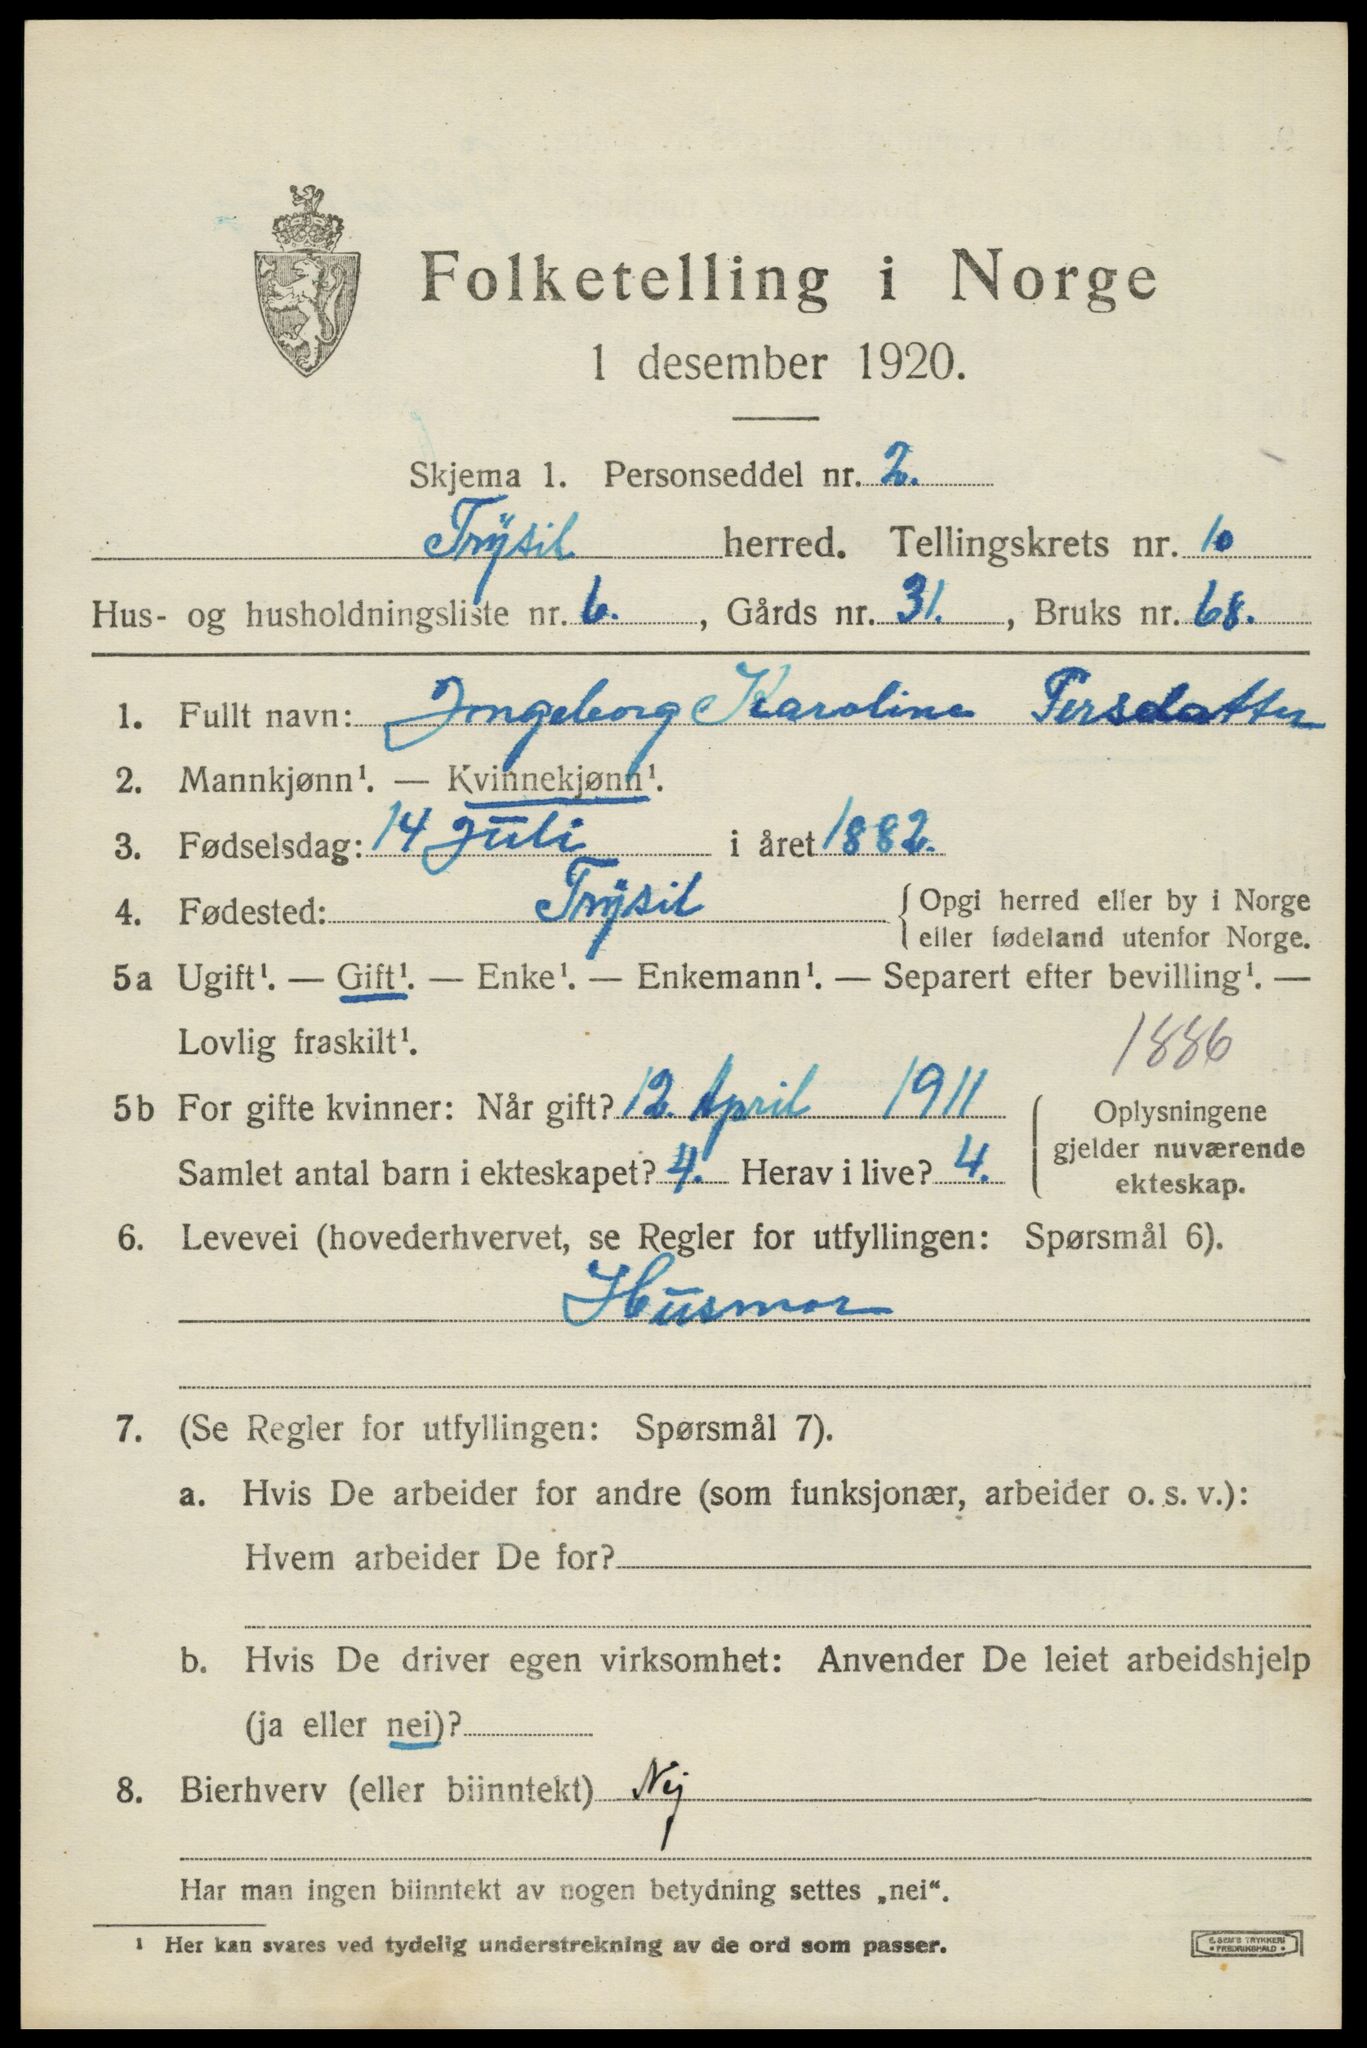 Folketelling i Norge
1 desember 1920.
Skjema 1. Personseddel nr. 2.
Trysil herred. Tellingskrets nr. 10
Hus- og husholdningsliste nr. 6. , Gårds nr. 31. , Bruks nr. 68.
1. Fullt navn: Ingeborg Karoline Persdatter
2. Mannkjønn¹. — Kvinnekjønn¹.
3. Fødselsdag: 14 Juli i året 1882.
4. Fødested: Trysil { Opgi herred eller by i Norge
eller fødeland utenfor Norge.
5a Ugift¹. — Gift¹. — Enke¹. — Enkemann¹. — Separert efter bevilling¹. —
Lovlig fraskilt¹.
1886
5b For gifte kvinner: Når gift? 12. April 1911
Samlet antal barn i ekteskapet? 4. Herav i live? 4.
Oplysningene
gjelder nuværende
ekteskap.
6. Levevei (hovederhvervet, se Regler for utfyllingen: Spørsmål 6).
Husmor
7. (Se Regler for utfyllingen: Spørsmål 7).
a. Hvis De arbeider for andre (som funksjonær, arbeider o. s. v.):
Hvem arbeider De for?
b. Hvis De driver egen virksomhet: Anvender De leiet arbeidshjelp
(ja eller nei)?
8. Bierhverv (eller biinntekt) Nej
Har man ingen biinntekt av nogen betydning settes „nei“.
¹ Her kan svares ved tydelig understrekning av de ord som passer.
E. SEM'S TRYKKERI
• FREDRIKSHALD •